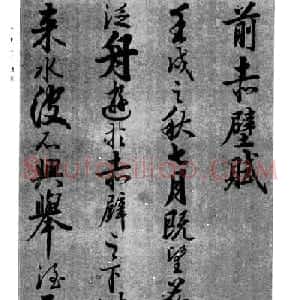 前赤壁賦
壬戌之秋七月既望
泛舟遊於赤壁之下
来水波不興舉酒